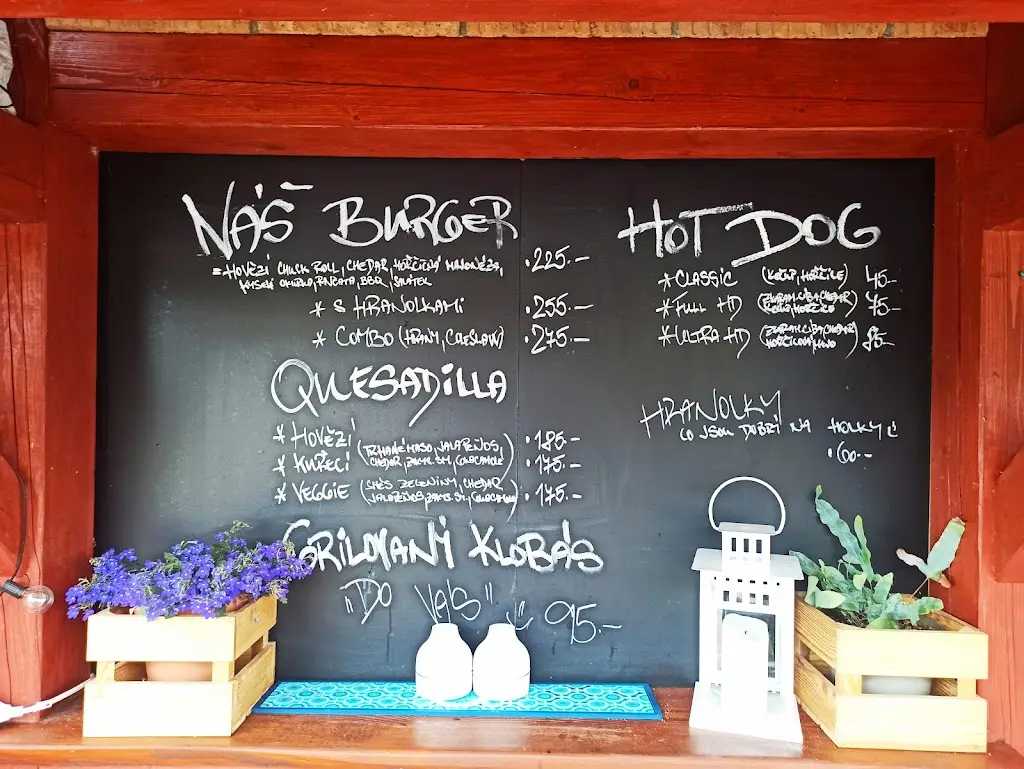 NÁŠ BURGER
= HOVĚZÍ CHUCK ROLL, CHEDAR, HOŘČIČNÁ MAJONÉZA, 225.-
KYSELÁ OKURKA, RAJČATA, BBQ, SALÁTEK
* S HRANOLKAMI 255.-
* COMBO (HRANY, COLESLAW) 275.-
QUESADILLA
* HOVĚZÍ 185.-
(TRHANÉ MASO, JALAPEÑOS,
* KUŘECÍ CHEDAR, ZAKYS. SM., GUACAMOLE) 175.-
* VEGGIE (SMĚS ZELENINY, CHEDAR 175.-
JALAPEÑOS, ZAKYS. SM., GUACAMOLE)
GRILOVANÝ KLOBÁS
"DO VAJS" 95.-
HOT DOG
* CLASSIC (KEČUP, HOŘČICE) 45-
* FULL HD 75-
KEČUP, HOŘČICE)
* ULTRA HD 85-
HRANOLKY
CO JSOU DOBRÝ NA HOLKY